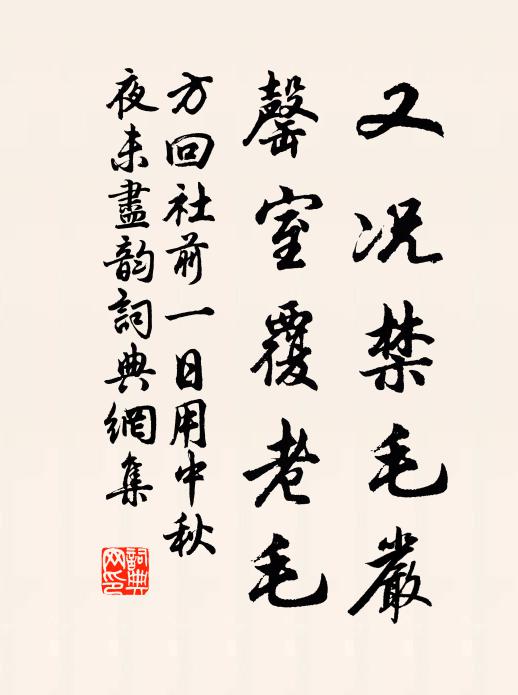 又况禁毛嚴
罄室覆老毛
方回社前一日用中秋
夜未盡韵詞典網集
詞典网印